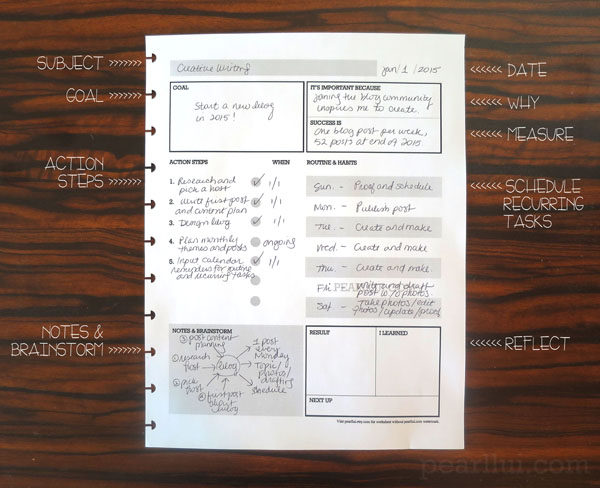 SUBJECT >>>>>>
Creative Writing
jan/1/2015
<<<<<< DATE
GOAL >>>>>>
GOAL
Start a new blog
in 2015!
IT'S IMPORTANT BECAUSE
joining the blog community
inspires me to create.
<<<<<< WHY
SUCCESS IS
one blog post per week,
52 posts at end of 2015.
<<<<<< MEASURE
ACTION
STEPS >>>>>>
ACTION STEPS WHEN
1. Research and
pick a host 1/1
2. Write first post
and content plan 1/1
3. Design blog 1/1
4. Plan monthly
themes and posts ongoing
5. Input calendar
reminders for routine
and recurring tasks 1/1
ROUTINE & HABITS
Sun. - Proof and schedule
Mon. - Publish post
Tue. - Create and make
Wed. - Create and make
Thu. - Create and make
Fri. - Write and draft
post w/o photos
Sat - Take photos/edit
photos/update/proof
<<<<<< SCHEDULE
RECURRING
TASKS
NOTES &
BRAINSTORM >>>>>>
NOTES & BRAINSTORM
③ post content
planning
① research
host
② pick
host
④ first post
about
blog
blog
1 post
every
Monday
Topic/
photos/
drafting
schedule
RESULT
I LEARNED
NEXT UP
<<<<<< REFLECT
pearlliu.com